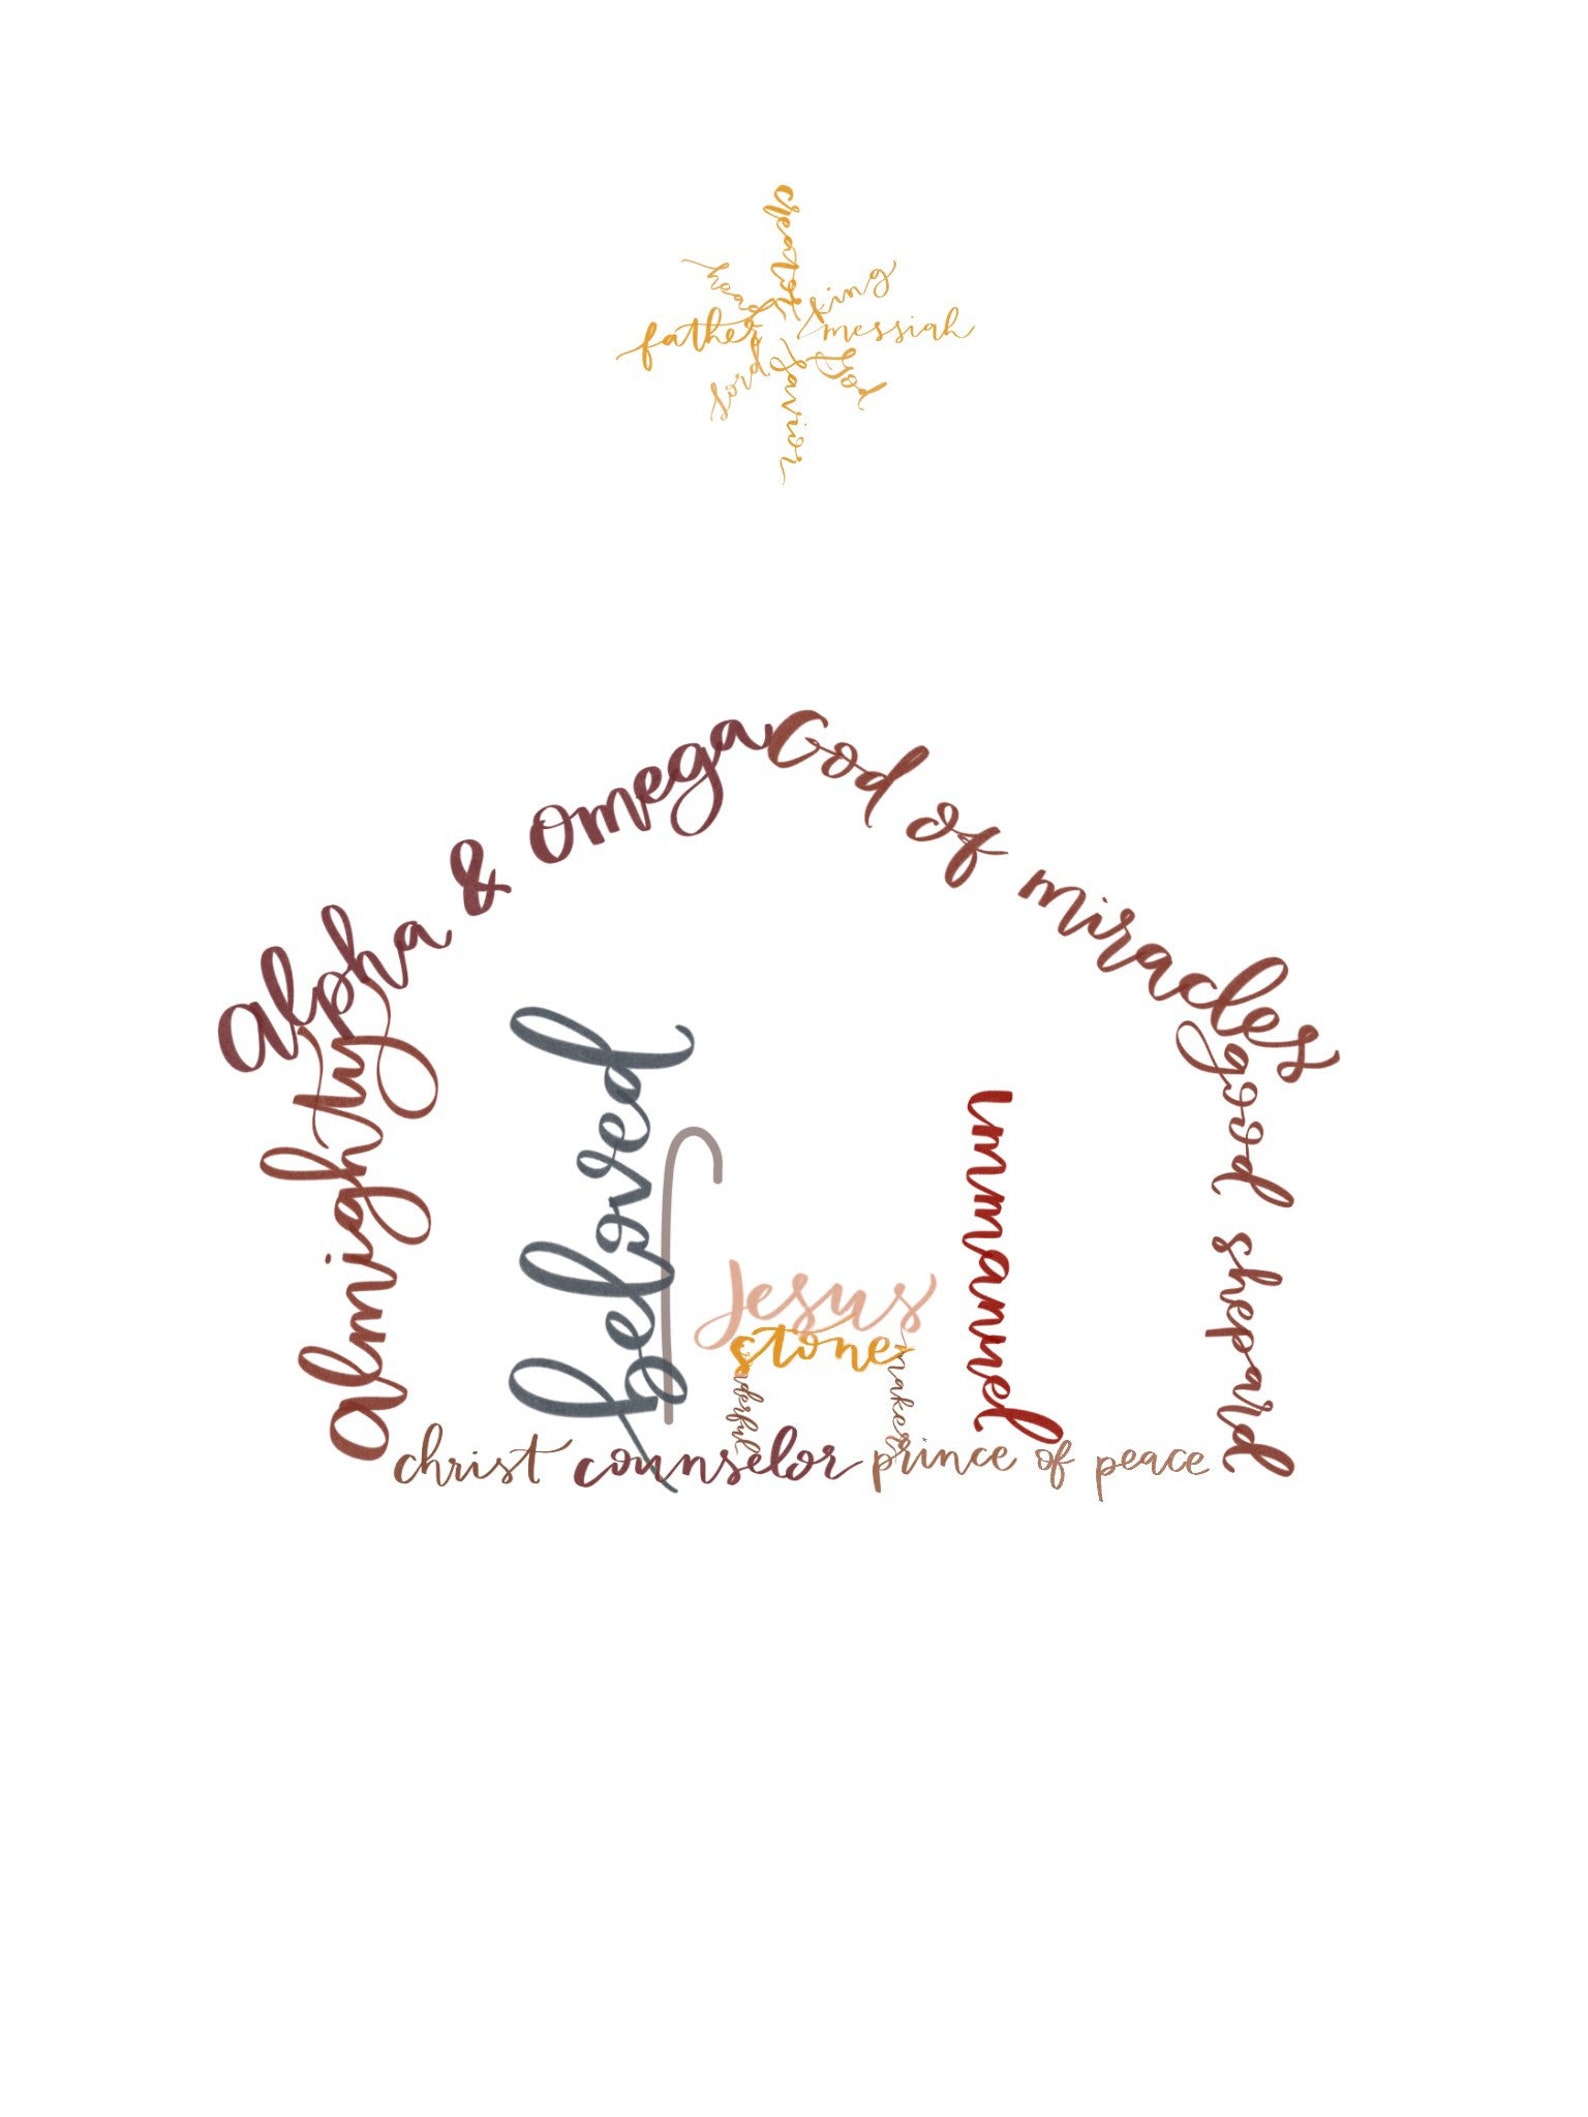 creator
king
head
father
messiah
Lord
God
savior
alpha & omega
God of miracles
almighty
beloved
immanuel
good
shepard
Jesus
stone
maker
christ counselor prince of peace